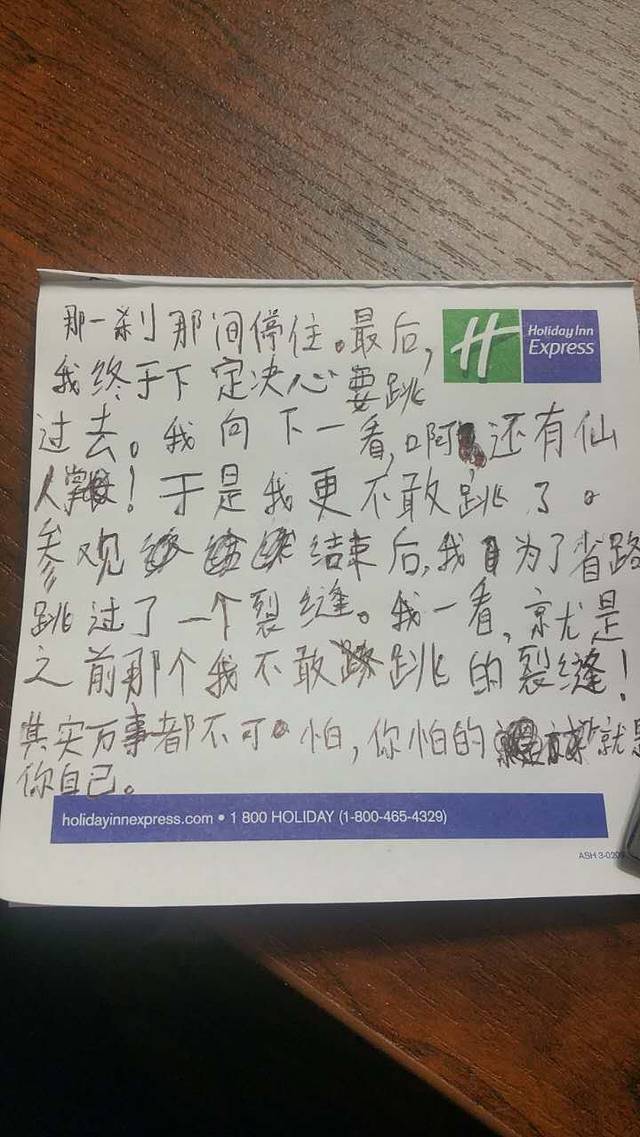 那一刹那间停住。最后,
Holiday Inn
Express
我终于下定决心要跳
过去。我向下一看,啊还有仙
人掌!于是我更不敢跳了。
参观结束后,我为了省路
跳过了一个裂缝。我一看,就是
之前那个我不敢跳的裂缝!
其实万事都不可怕,你怕的就是
你自己。
holidayinnexpress.com • 1 800 HOLIDAY (1-800-465-4329)
ASH 3-020